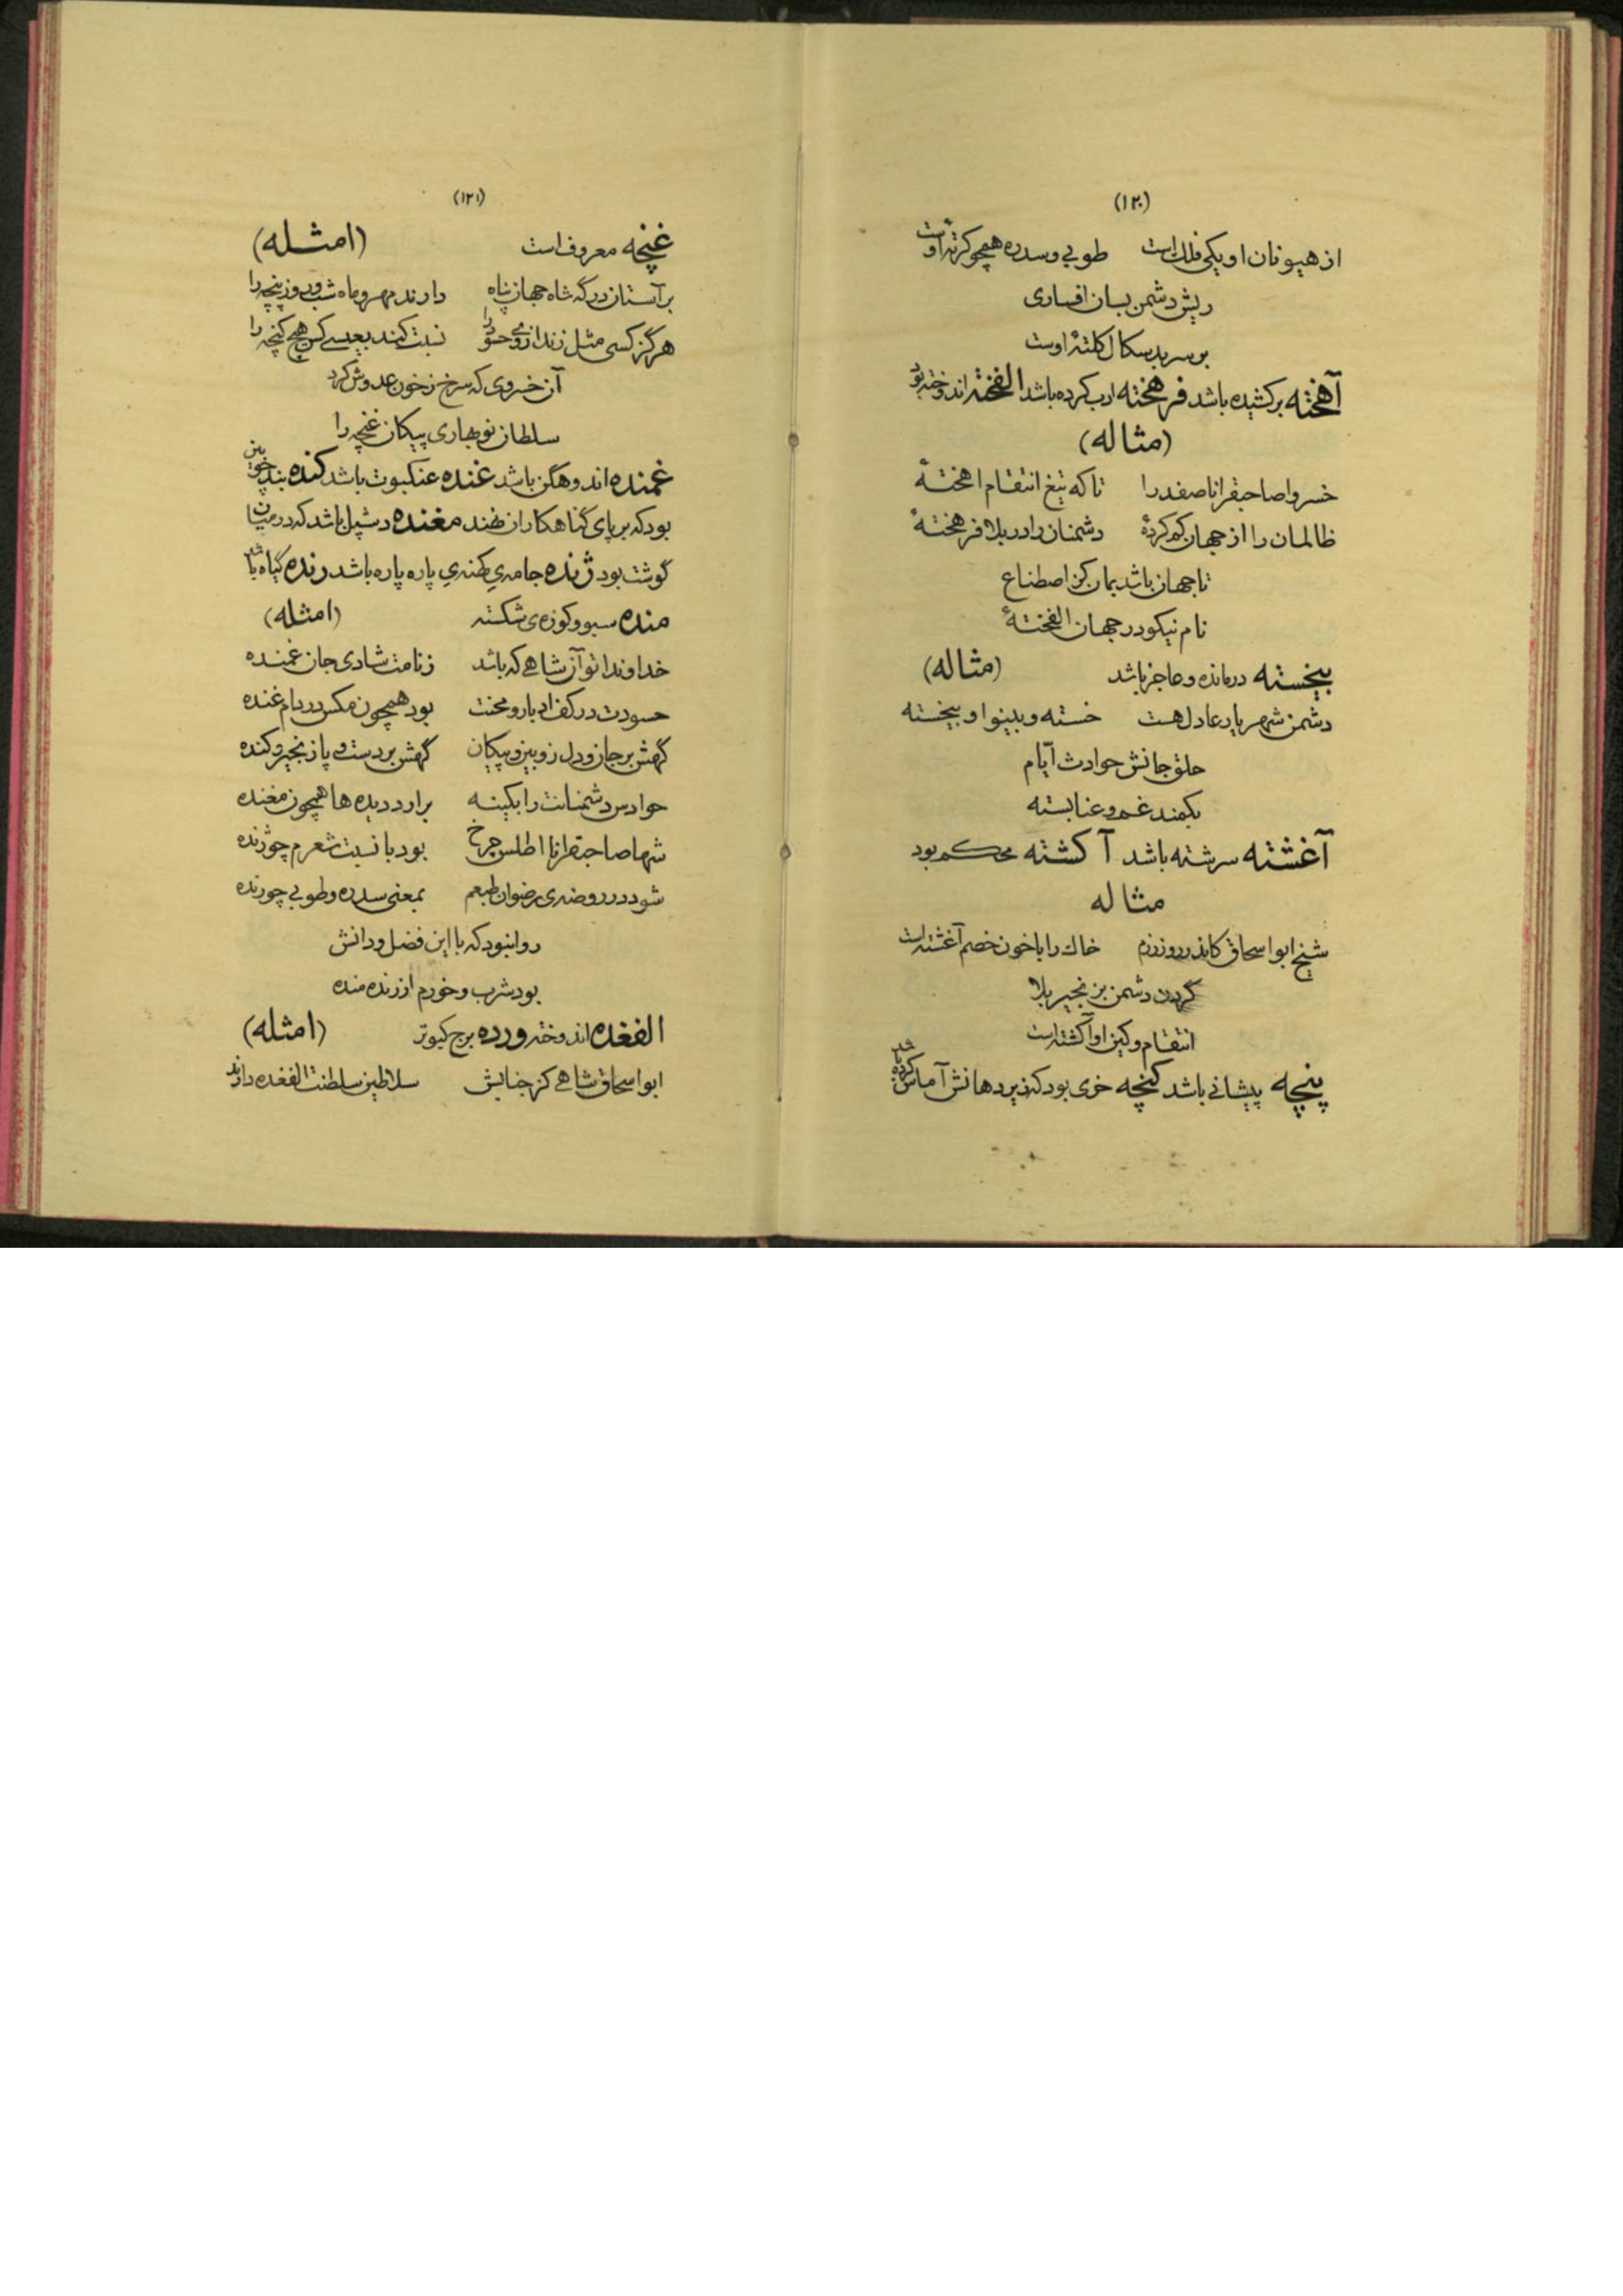 (۱۲۰)
از هیونان او یکی فلک است طوبی و سدره همچو کرته اوست
ریش دشمن بسان افساری
بر سر بدسکال کلتهٔ اوست
آهخته برکشیده باشد فرهخته ادب کرده باشد الفخته اندوخته بود
(مثاله)
خسروا صاحبقرانا صفدرا تا که تیغ انتقام اهختهٔ
ظالمان را از جهان کم کردهٔ دشمنان را در بلا فرهختهٔ
تا جهان باشد بمان کز اصطناع
نام نیکو در جهان الفختهٔ
بیخسته درمانده و عاجز باشد (مثاله)
دشمن شهریار عادل هست خسته و بینوا و بیخسته
حلق جانش حوادث ایّام
بکمند غم و عنا بسته
آغشته سرشته باشد آکشته محکم بود
مثاله
شیخ ابو اسحاق کاندر روز رزم خاک را با خون خصم آغشته است
گردن دشمن بزنجیر بلا
انتقام و کین او آکشته است
پنچه پیشانی باشد کنچه خری بود که زیر دهانش آماس کرده باشد
(۱۲۱)
غنچه معروف است (امثله)
بر آستان درگه شاه جهان پناه دارند مهر و ماه شب و روز پنچه را
هرگز کسی مثل نزند از وی حسود را نسبت کند بعیسی کس هیچ کنچه را
آن خسروی که سرخ ز خون عدوش کرد
سلطان نوبهاری پیکان غنچه را
غمنده اندوهگن باشد غنده عنکبوت باشد کنده بند چوبین
بود که بر پای گناهکاران نهند مغنده دشپل باشد که در میان
گوشت بود ژنده جامه‌ی کهنه‌ی پاره پاره باشد رنده گیاه باشد
منده سبو و کوزه‌ی شکسته (امثله)
خداوندا تو آن شاهی که باشد ز نامت شادی جان غمنده
حسودت در کف ادبار و محنت بود همچون مکس در دام غنده
گهش بر جان و دل زوبین و پیکان گهش بر دست و پا زنجیر و کنده
حوادس دشمنانت را بکینه برارد دیده ها همچون مغنده
شها صاحبقرانا اطلس چرخ بود با نسبت شعرم چو ژنده
شود در روضه‌ی رضوان طبعم بمعنی سدره و طوبی چو رنده
روا نبود که با این فضل و دانش
بود شرب و خورم از رنده منده
الفغده اندوخته ورده برج کبوتر (امثله)
ابو اسحاق شاهی کز جنابش سلاطین سلطنت الفغده دارند